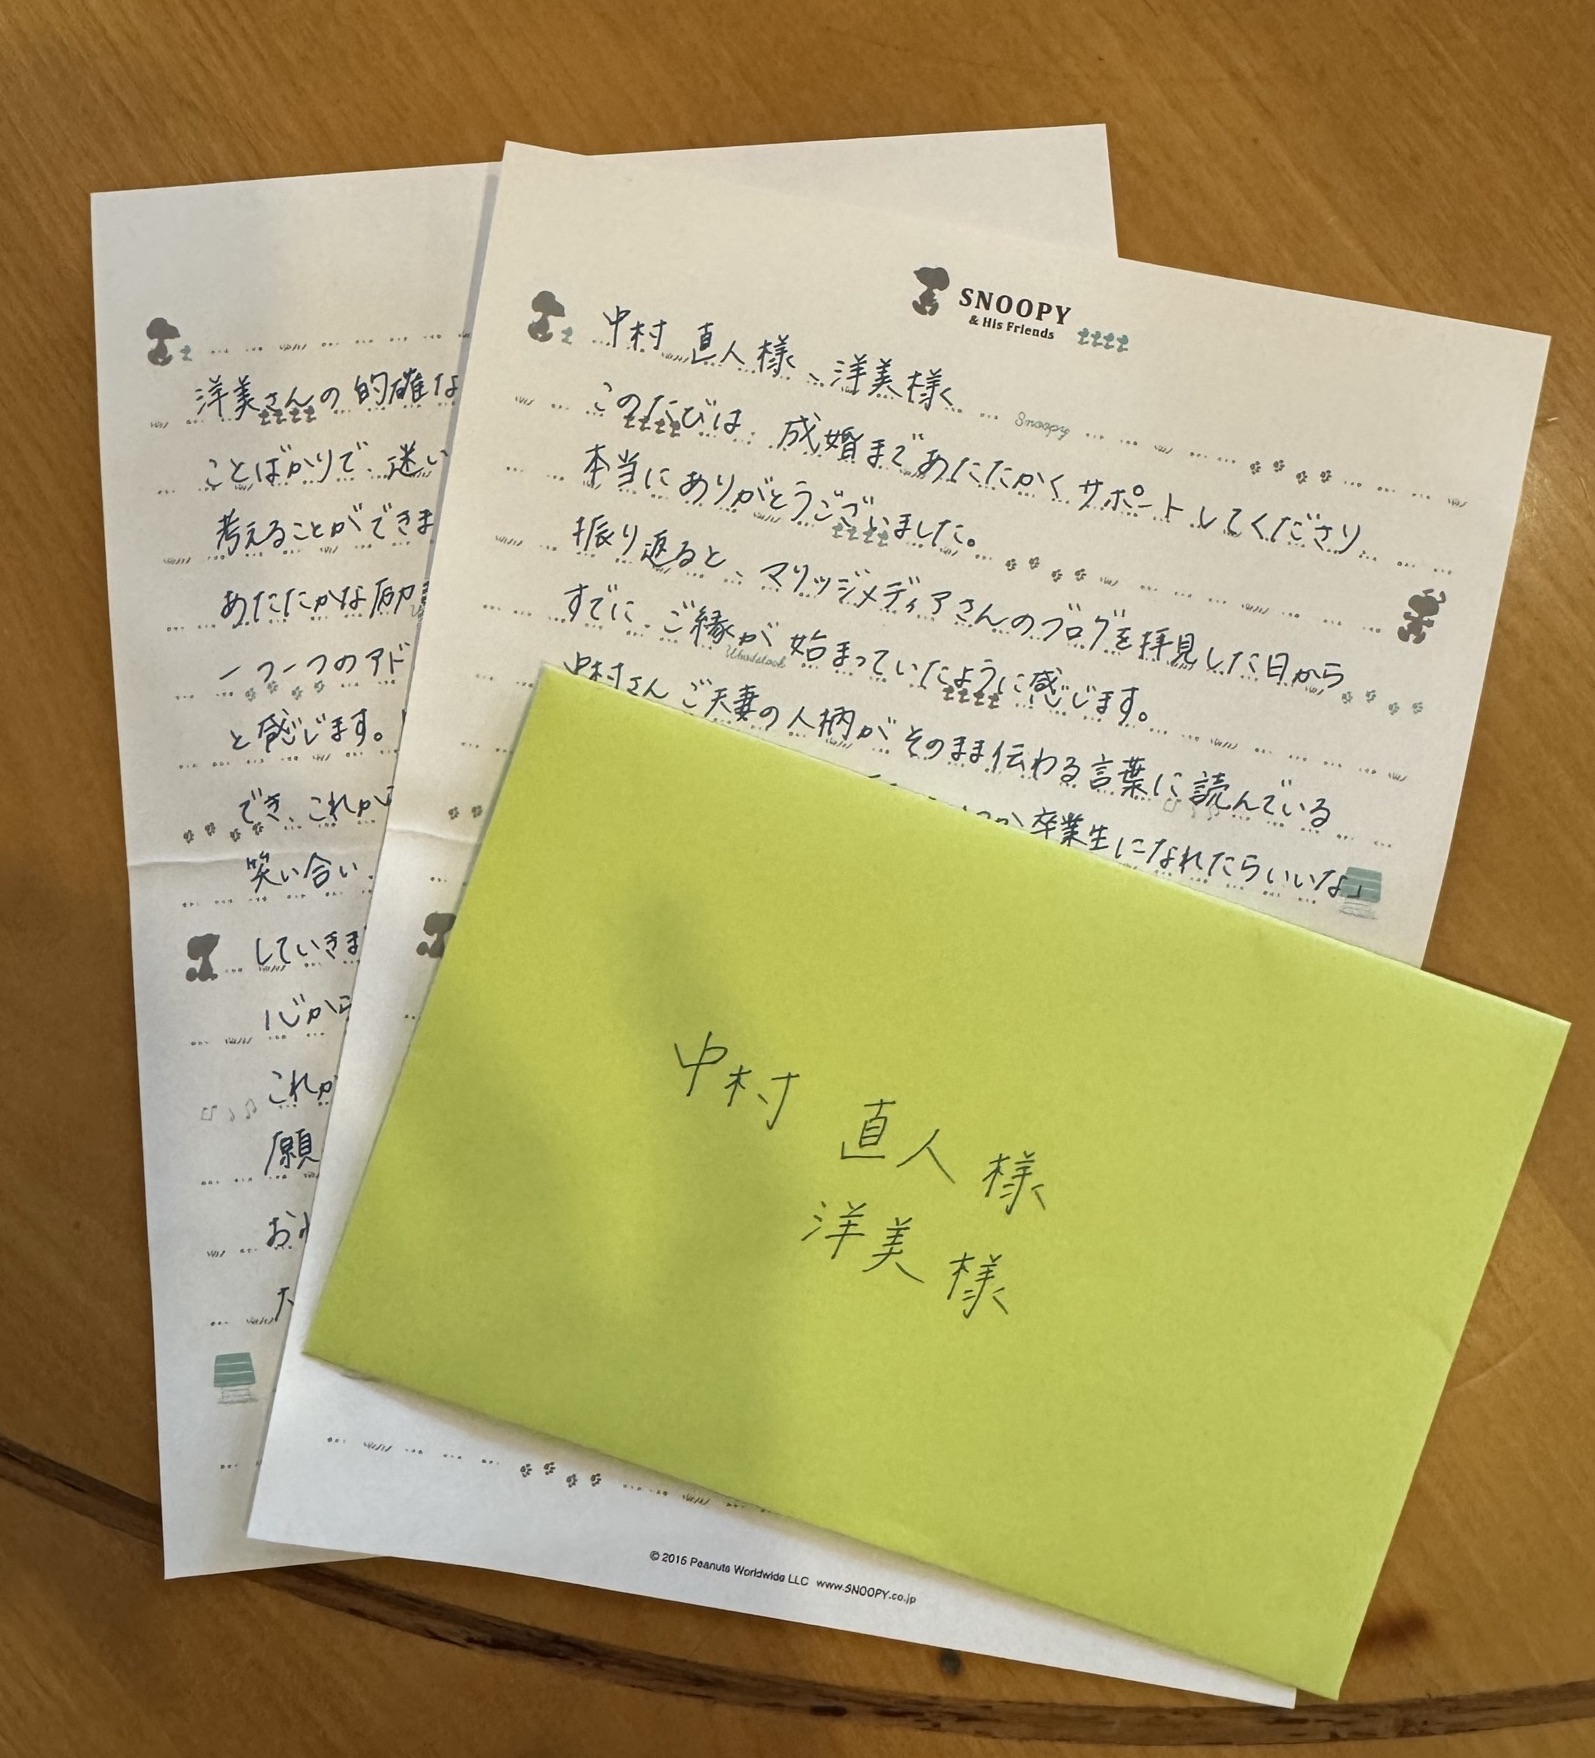 SNOOPY
& His Friends
中村 直人様、洋美様
Snoopy
このたびは、成婚まであたたかくサポートしてくださり
本当にありがとうございました。
振り返ると、マリッジメディアさんのブログを拝見した日から
すでに、ご縁が始まっていたように感じます。
Woodstock
中村さんご夫妻の人柄がそのまま伝わる言葉に読んでいる
卒業生になれたらいいな」
洋美さんの的確な
ことばかりで、迷い
考えることができま
あたたかな励
一つ一つのアド
と感じます。
でき、これから
笑い合い、
していきま
心から
これか
願
お
中村 直人様
洋美様
© 2016 Peanuts Worldwide LLC www.SNOOPY.co.jp